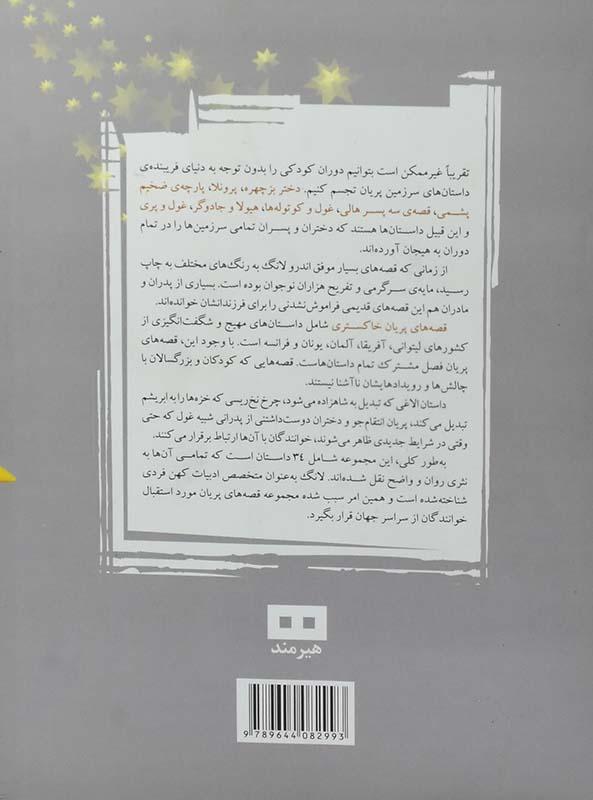 تقریباً غیرممکن است بتوانیم دوران کودکی را بدون توجه به دنیای فریبنده‌ی
داستان‌های سرزمین پریان تجسم کنیم. دختر بزچهره، پرونلا، پارچه‌ی ضخیم
پشمی، قصه‌ی سه پسر هالی، غول و کوتوله‌ها، هیولا و جادوگر، غول و پری
و این قبیل داستان‌ها هستند که دختران و پسران تمامی سرزمین‌ها را در تمام
دوران به هیجان آورده‌اند.
از زمانی که قصه‌های بسیار موفق اندرو لانگ به رنگ‌های مختلف به چاپ
رسید، مایه‌ی سرگرمی و تفریح هزاران نوجوان بوده است. بسیاری از پدران و
مادران هم این قصه‌های قدیمی فراموش‌نشدنی را برای فرزندانشان خوانده‌اند.
قصه‌های پریان خاکستری شامل داستان‌های مهیج و شگفت‌انگیزی از
کشورهای لیتوانی، آفریقا، آلمان، یونان و فرانسه است. با وجود این، قصه‌های
پریان فصل مشترک تمام داستان‌هاست. قصه‌هایی که کودکان و بزرگسالان با
چالش‌ها و رویدادهایشان ناآشنا نیستند.
داستان الاغی که تبدیل به شاهزاده می‌شود، چرخ نخ‌ریسی که خزه‌ها را به ابریشم
تبدیل می‌کند، پریان انتقام‌جو و دختران دوست‌داشتنی از پدرانی شبیه غول که حتی
وقتی در شرایط جدیدی ظاهر می‌شوند، خوانندگان با آن‌ها ارتباط برقرار می‌کنند.
به‌طور کلی، این مجموعه شامل ۳۴ داستان است که تمامی آن‌ها به
نثری روان و واضح نقل شده‌اند. لانگ به‌عنوان متخصص ادبیات کهن فردی
شناخته‌شده است و همین امر سبب شده مجموعه قصه‌های پریان مورد استقبال
خوانندگان از سراسر جهان قرار بگیرد.
هیرمند
9 789644 082993